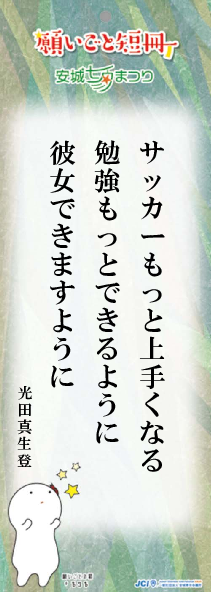 願いごと短冊
安城七夕まつり
サッカーもっと上手くなる
勉強もっとできるように
彼女できますように
光田真生登
JCI